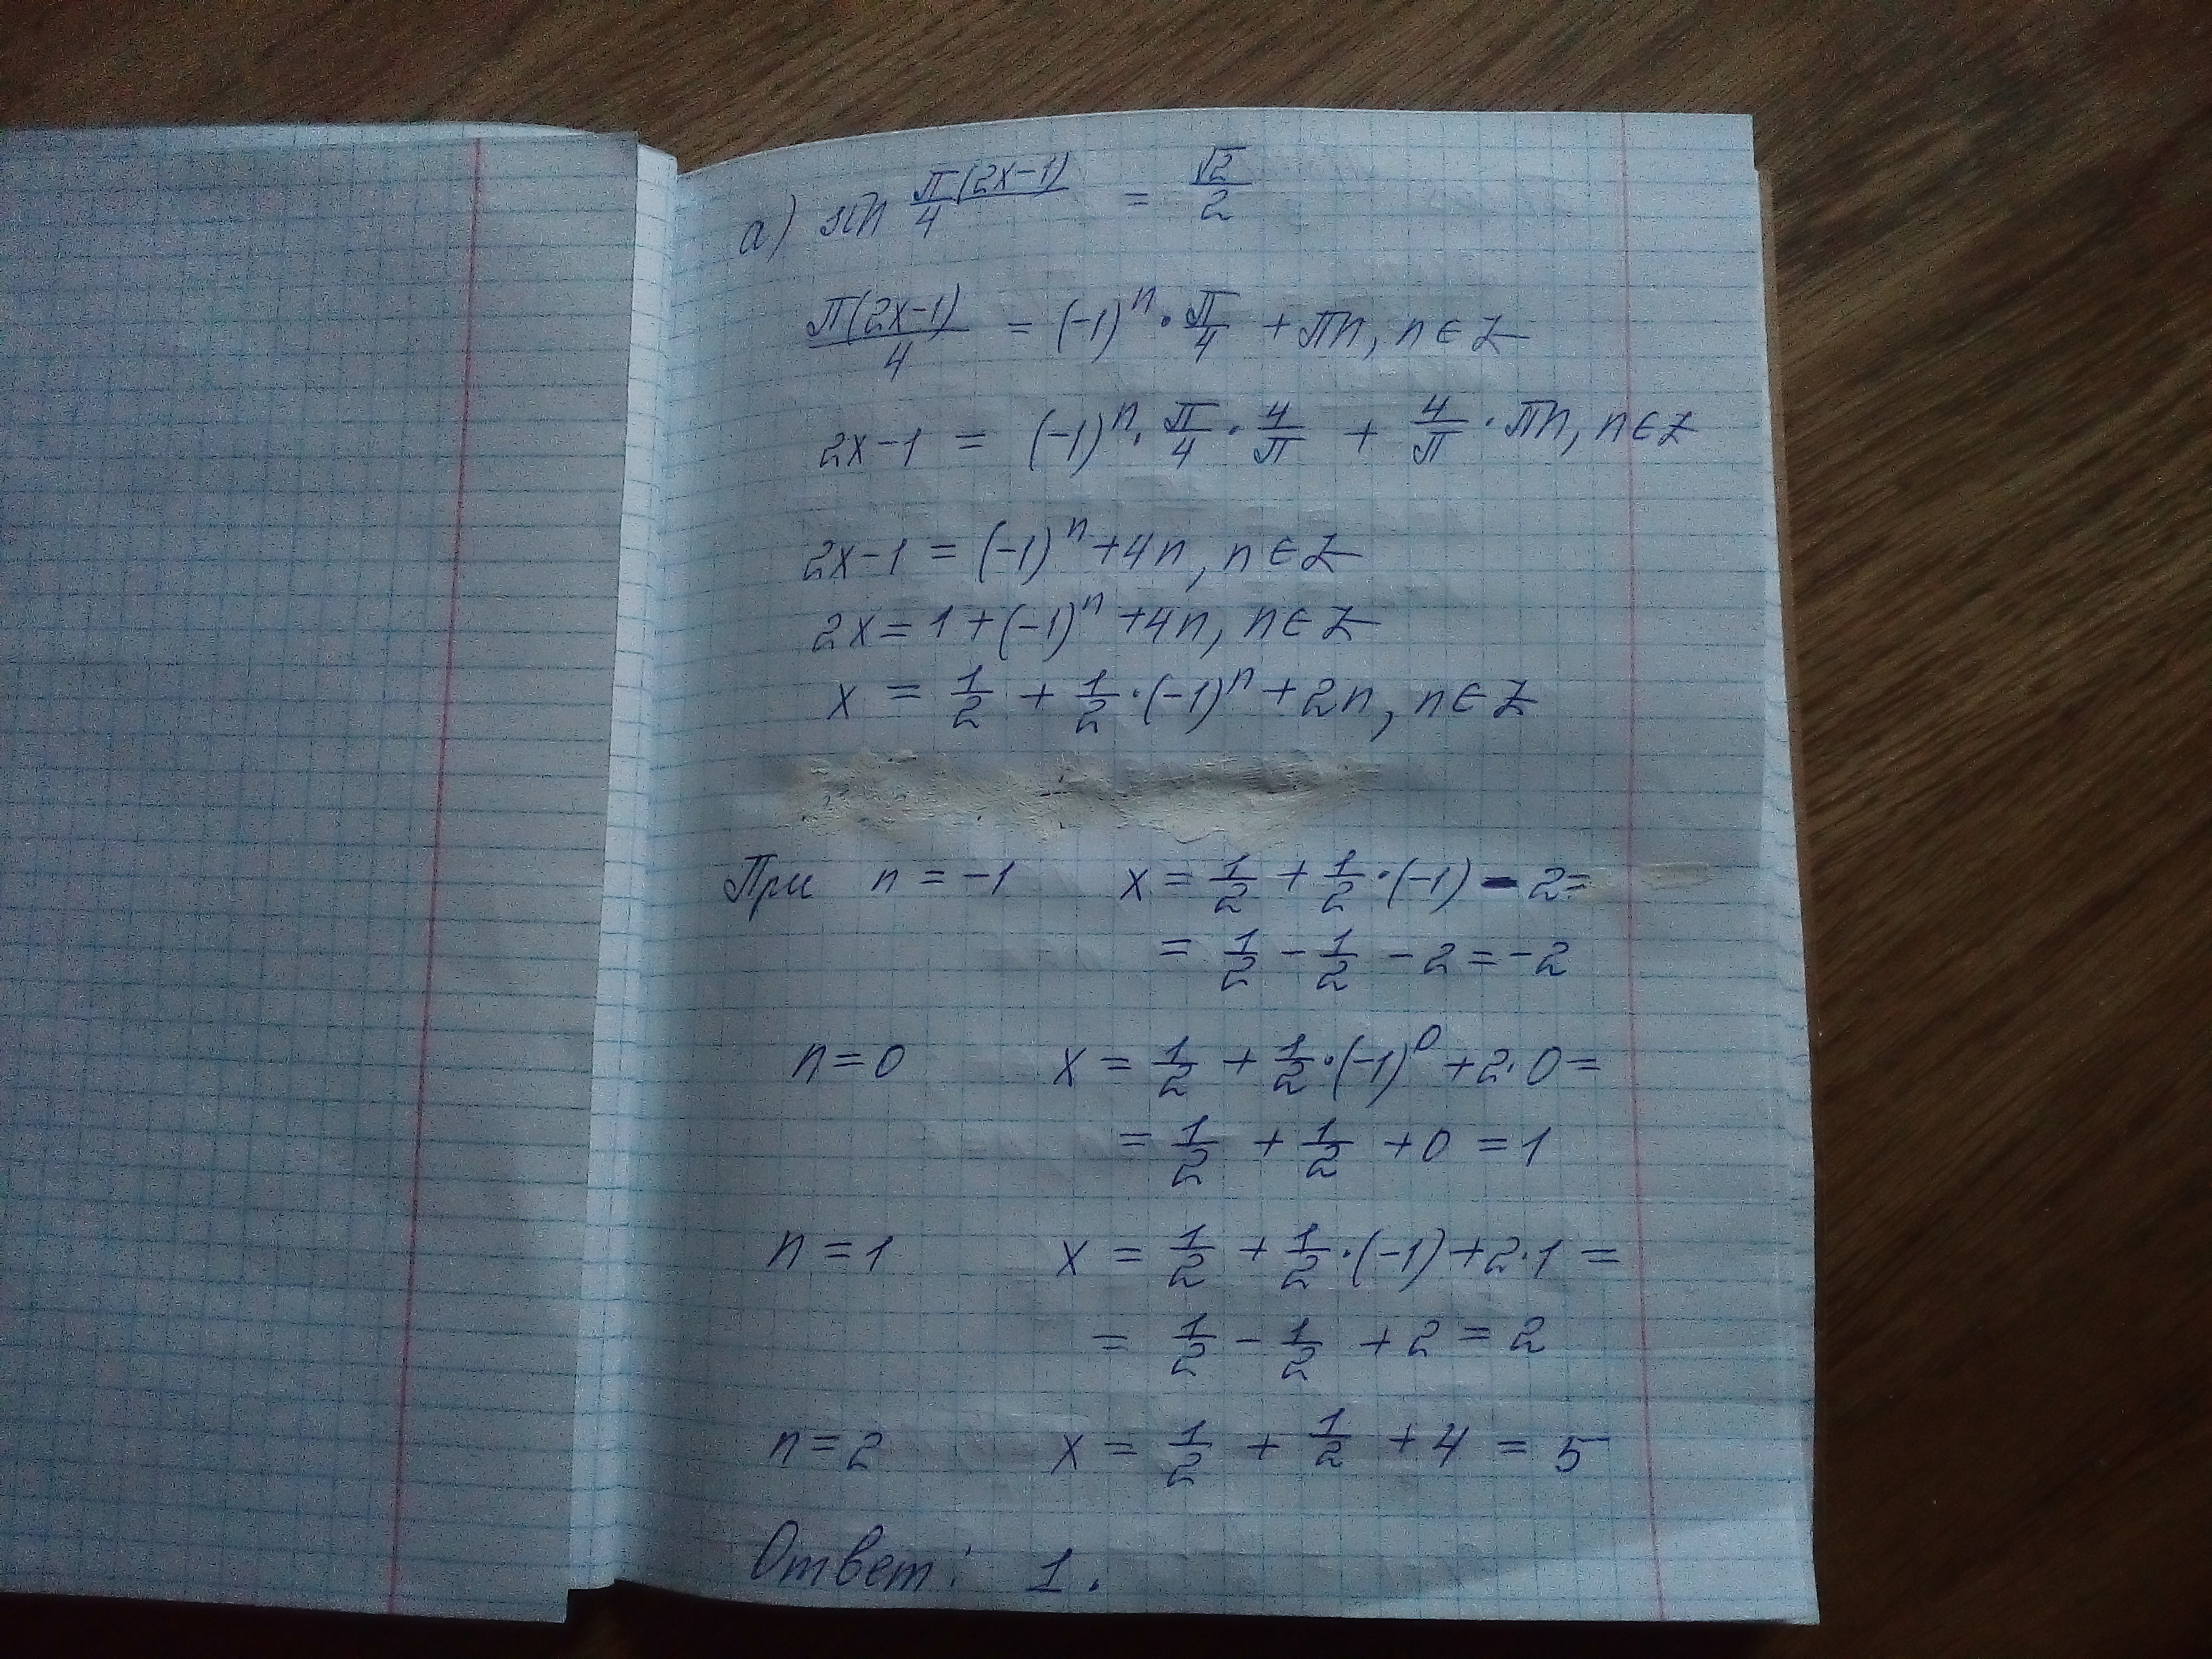 а) sin π(2x-1)/4 = √2/2
π(2x-1)/4 = (-1)ⁿ · π/4 + πn, n ∈ Z
2x-1 = (-1)ⁿ · π/4 · 4/π + 4/π · πn, n ∈ Z
2x-1 = (-1)ⁿ + 4n, n ∈ Z
2x = 1 + (-1)ⁿ + 4n, n ∈ Z
x = 1/2 + 1/2 · (-1)ⁿ + 2n, n ∈ Z
При n = -1 x = 1/2 + 1/2 · (-1) - 2 =
= 1/2 - 1/2 - 2 = -2
n = 0 x = 1/2 + 1/2 · (-1)⁰ + 2 · 0 =
= 1/2 + 1/2 + 0 = 1
n = 1 x = 1/2 + 1/2 · (-1) + 2 · 1 =
= 1/2 - 1/2 + 2 = 2
n = 2 x = 1/2 + 1/2 + 4 = 5
Ответ: 1.